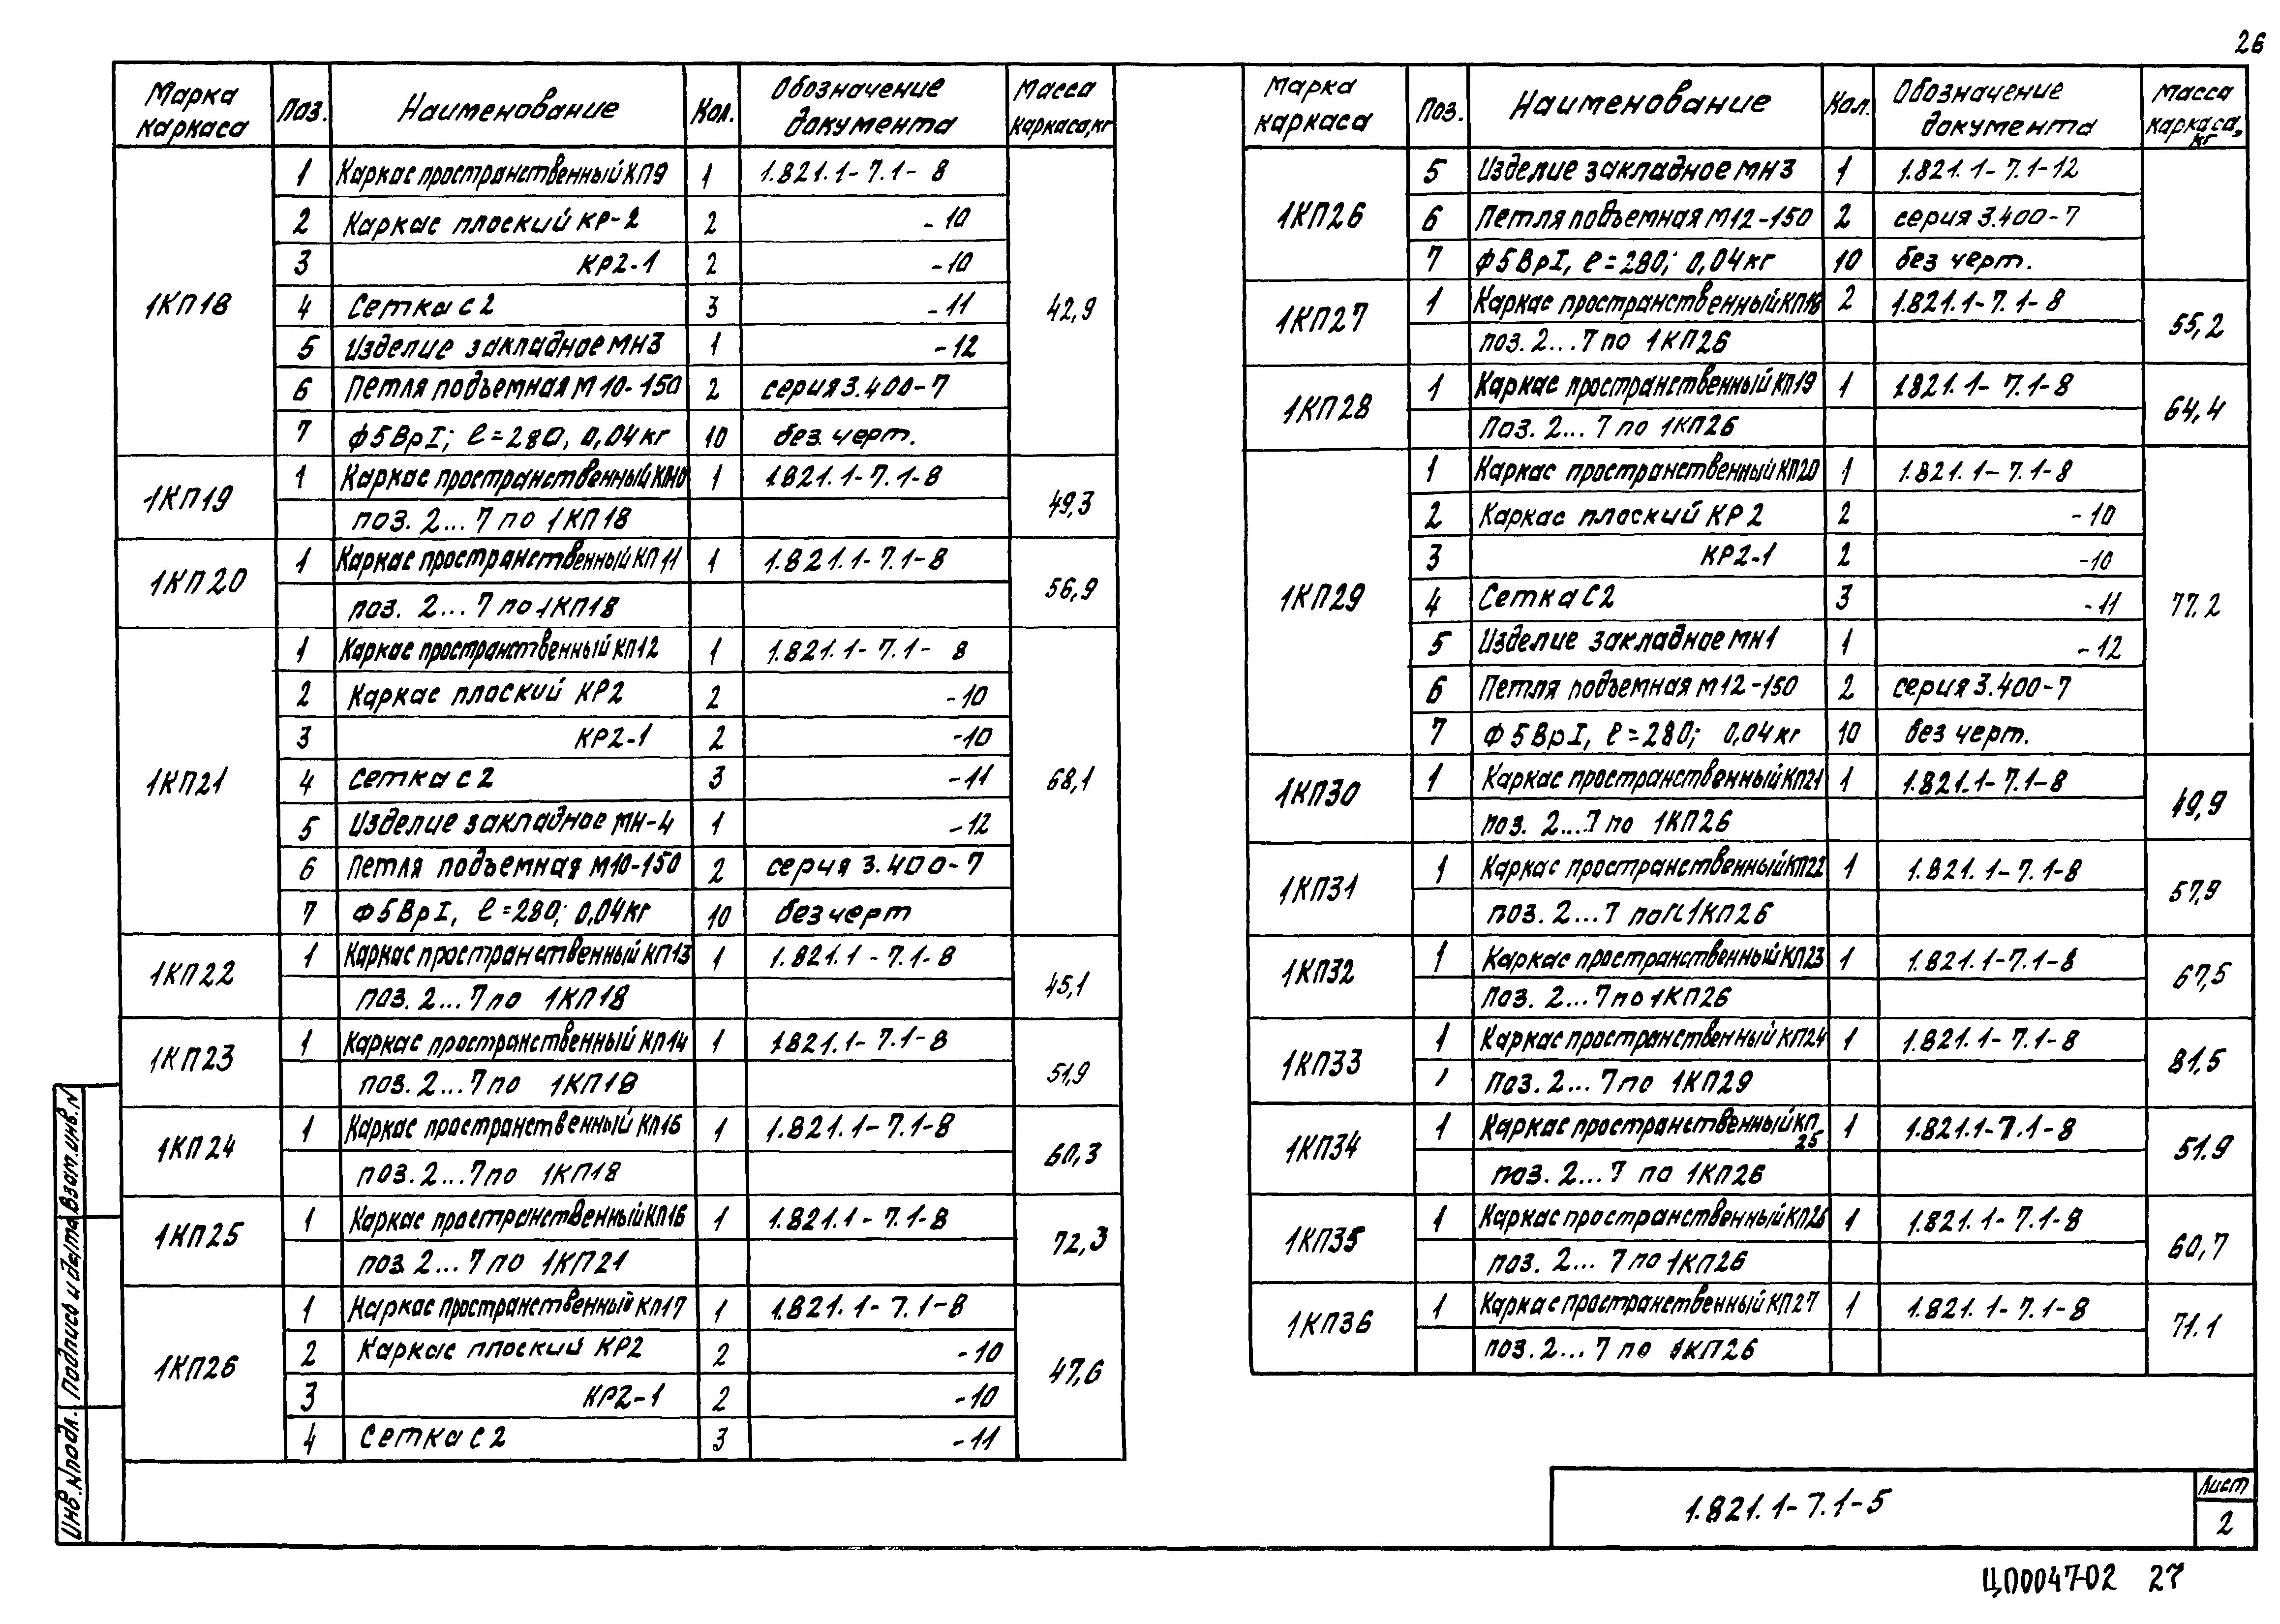 26
Марка каркаса Поз. Наименование Кол. Обозначение документа Масса каркаса, кг
1КП18 42,9
1 Каркас пространственный КП9 1 1.821.1-7.1-8
2 Каркас плоский КР-2 2 -10
3 КР2-1 2 -10
4 Сетка С2 3 -11
5 Изделие закладное МН3 1 -12
6 Петля подъемная М10-150 2 серия 3.400-7
7 Ф5ВрI; ℓ=280, 0,04кг 10 без черт.
1КП19 49,3
1 Каркас пространственный КП10 1 1.821.1-7.1-8
поз. 2...7 по 1КП18
1КП20 56,9
1 Каркас пространственный КП11 1 1.821.1-7.1-8
поз. 2...7 по 1КП18
1КП21 68,1
1 Каркас пространственный КП12 1 1.821.1-7.1-8
2 Каркас плоский КР2 2 -10
3 КР2-1 2 -10
4 сетка с2 3 -11
5 Изделие закладное МН-4 1 -12
6 Петля подъемная М10-150 2 серия 3.400-7
7 Ф5ВрI, ℓ=280; 0,04кг 10 без черт
1КП22 45,1
1 Каркас пространственный КП13 1 1.821.1-7.1-8
поз. 2...7 по 1КП18
1КП23 51,9
1 Каркас пространственный КП14 1 1.821.1-7.1-8
поз. 2...7 по 1КП18
1КП24 60,3
1 Каркас пространственный КП15 1 1.821.1-7.1-8
поз. 2...7 по 1КП18
1КП25 72,3
1 Каркас пространственный КП16 1 1.821.1-7.1-8
поз 2...7 по 1КП21
1КП26 47,6
1 Каркас пространственный КП17 1 1.821.1-7.1-8
2 Каркас плоский КР2 2 -10
3 КР2-1 2 -10
4 Сетка С2 3 -11
Марка каркаса Поз. Наименование Кол. Обозначение документа Масса каркаса, кг
1КП26
5 Изделие закладное МН3 1 1.821.1-7.1-12
6 Петля подъемная М12-150 2 серия 3.400-7
7 Ф5ВрI, ℓ=280; 0,04кг 10 без черт.
1КП27 55,2
1 Каркас пространственный КП18 2 1.821.1-7.1-8
поз. 2...7 по 1КП26
1КП28 64,4
1 Каркас пространственный КП19 1 1.821.1-7.1-8
Поз. 2...7 по 1КП26
1КП29 77.2
1 Каркас пространственный КП20 1 1.821.1-7.1-8
2 Каркас плоский КР2 2 -10
3 КР2-1 2 -10
4 Сетка С2 3 -11
5 Изделие закладное МН1 1 -12
6 Петля подъемная М12-150 2 серия 3.400-7
7 Ф5ВрI, ℓ=280; 0,04кг 10 без черт.
1КП30 49,9
1 Каркас пространственный КП21 1 1.821.1-7.1-8
поз. 2...7 по 1КП26
1КП31 57,9
1 Каркас пространственный КП22 1 1.821.1-7.1-8
поз. 2...7 по 1КП26
1КП32 67,5
1 Каркас пространственный КП23 1 1.821.1-7.1-8
Поз. 2...7 по 1КП26
1КП33 81,5
1 Каркас пространственный КП24 1 1.821.1-7.1-8
Поз. 2...7 по 1КП29
1КП34 51.9
1 Каркас пространственный КП 25 1 1.821.1-7.1-8
поз. 2...7 по 1КП26
1КП35 60,7
1 Каркас пространственный КП26 1 1.821.1-7.1-8
поз. 2...7 по 1КП26
1КП36 71.1
1 Каркас пространственный КП27 1 1.821.1-7.1-8
поз. 2...7 по 1КП26
Инв. N подл. Подпись и дата Взам. инв. N
1.821.1-7.1-5
Лист
2
ЦП0047-02 27